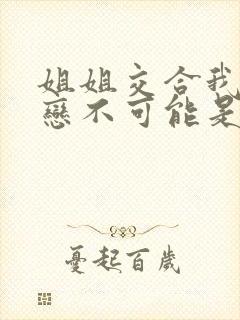 姐姐交合我
戀不可能是
憂起百歲